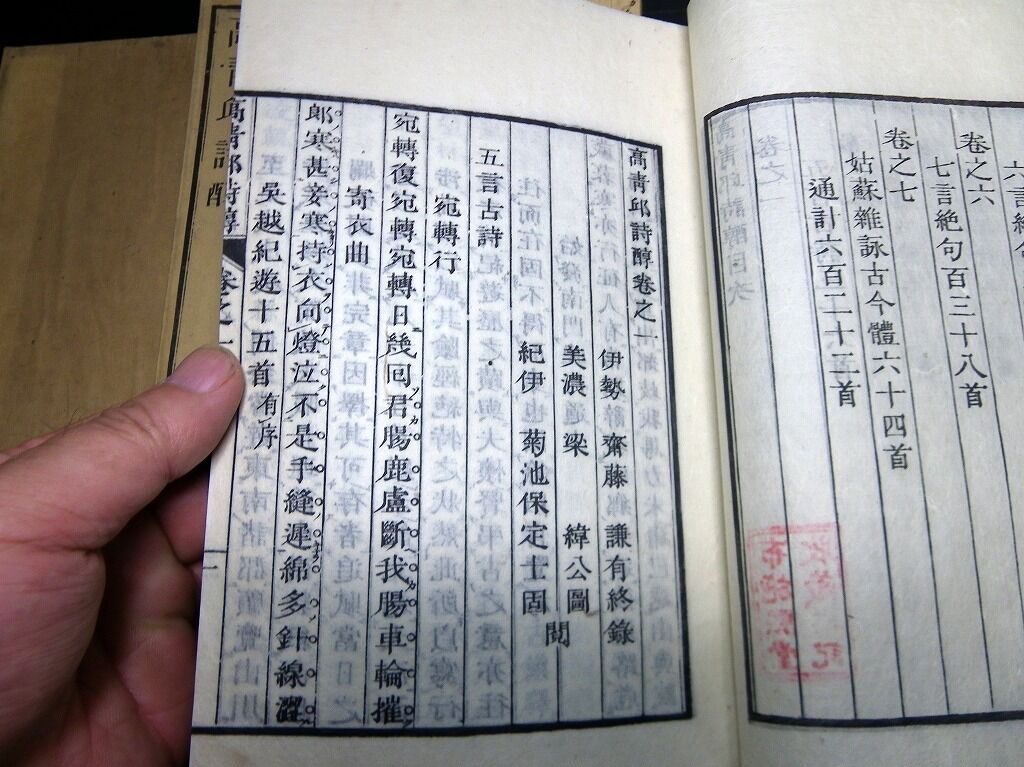 六言絶句
卷之六
七言絶句百三十八首
卷之七
姑蘇雜詠古今體六十四首
通計六百二十三首
高靑邱詩醇卷之一
伊勢 齋藤 謙有終錄
美濃 梁 緯公圖
紀伊 菊池保定士固
閲
五言古詩
宛轉行
宛轉復宛轉宛轉日幾囘君腸鹿盧斷我腸車輪摧
寄衣曲
郎寒甚妾寒持衣向燈泣不是手縫遲綿多針線澀
吳越紀遊十五首 有序
高靑邱詩醇
卷之一
一